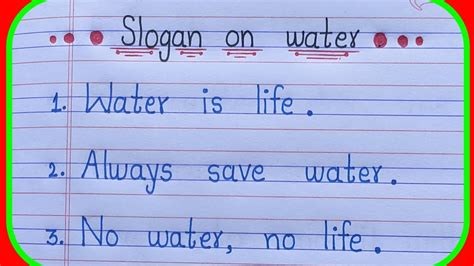 Slogan on water
1. Water is life.
2. Always save water.
3. No water, no life.